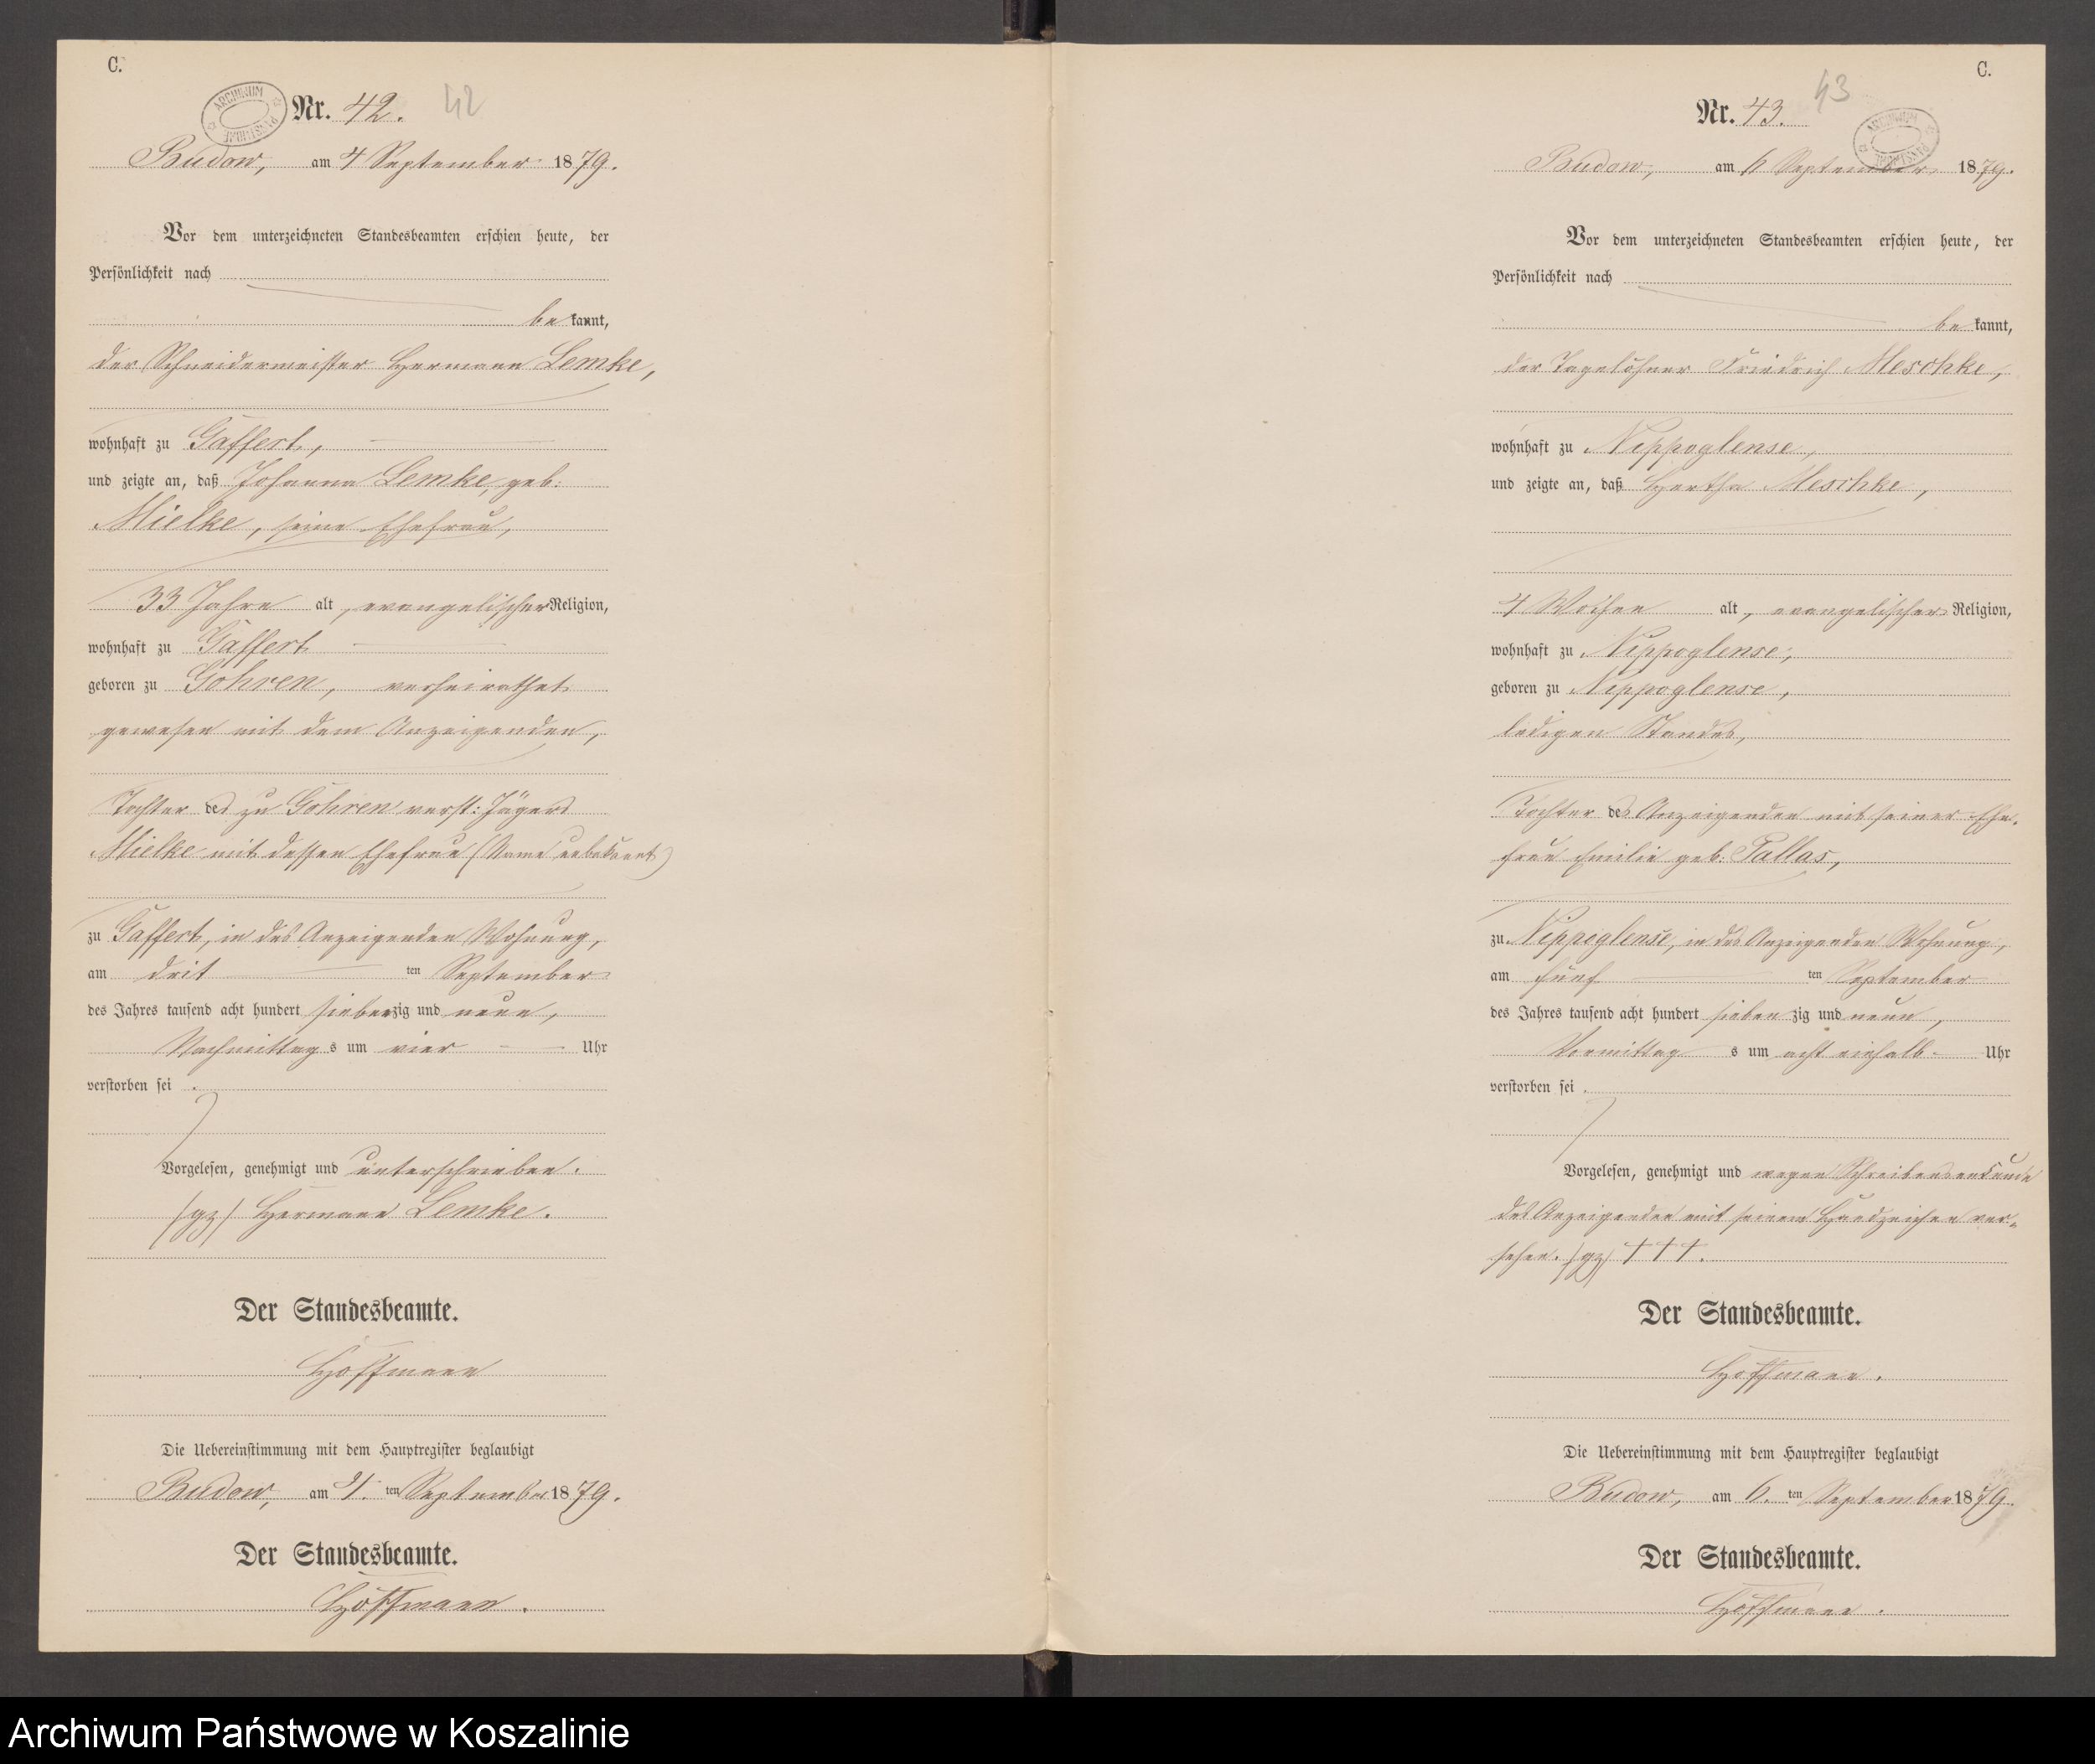 C.
ARCHIWUM PAŃSTWOWE
Nr. 42. 42
Budow, am 4 September 1879.
Vor dem unterzeichneten Standesbeamten erschien heute, der
Persönlichkeit nach
bekannt,
der Schneidermeister Hermann Lemke,
wohnhaft zu Gaffert,
und zeigte an, daß Johanna Lemke, geb:
Mielke, seine Ehefrau,
33 Jahre alt, evangelischer Religion,
wohnhaft zu Gaffert
geboren zu Gohren, verheirathet
gewesen mit dem Anzeigenden,
Tochter des zu Gohren verst: Jägers
Mielke mit dessen Ehefrau (Name unbekannt)
zu Gaffert, in des Anzeigenden Wohnung,
am drit ten September
des Jahres tausend acht hundert siebenzig und neun,
Nachmittags um vier Uhr
verstorben sei.
Vorgelesen, genehmigt und unterschrieben.
/gz/ Hermann Lemke.
Der Standesbeamte.
Hoffmann
Die Uebereinstimmung mit dem Hauptregister beglaubigt
Budow, am 4. ten September 1879.
Der Standesbeamte.
Hoffmann.
C.
Nr. 43. 43
ARCHIWUM PAŃSTWOWE
Budow, am 6 September 1879.
Vor dem unterzeichneten Standesbeamten erschien heute, der
Persönlichkeit nach
bekannt,
der Tagelöhner Friedrich Meschke,
wohnhaft zu Nippoglense,
und zeigte an, daß Hertha Meschke,
4 Wochen alt, evangelischer Religion,
wohnhaft zu Nippoglense,
geboren zu Nippoglense,
ledigen Standes,
Tochter des Anzeigenden mit seiner Ehe-
frau Emilie geb: Pallas,
zu Nippoglense, in des Anzeigenden Wohnung,
am fünf ten September
des Jahres tausend acht hundert siebenzig und neun,
Vormittags um acht einhalb Uhr
verstorben sei.
Vorgelesen, genehmigt und wegen Schreibensunkunde
des Anzeigenden mit seinem Handzeichen ver-
sehen. /gz/ † † †.
Der Standesbeamte.
Hoffmann.
Die Uebereinstimmung mit dem Hauptregister beglaubigt
Budow, am 6. ten September 1879.
Der Standesbeamte.
Hoffmann.
Archiwum Państwowe w Koszalinie